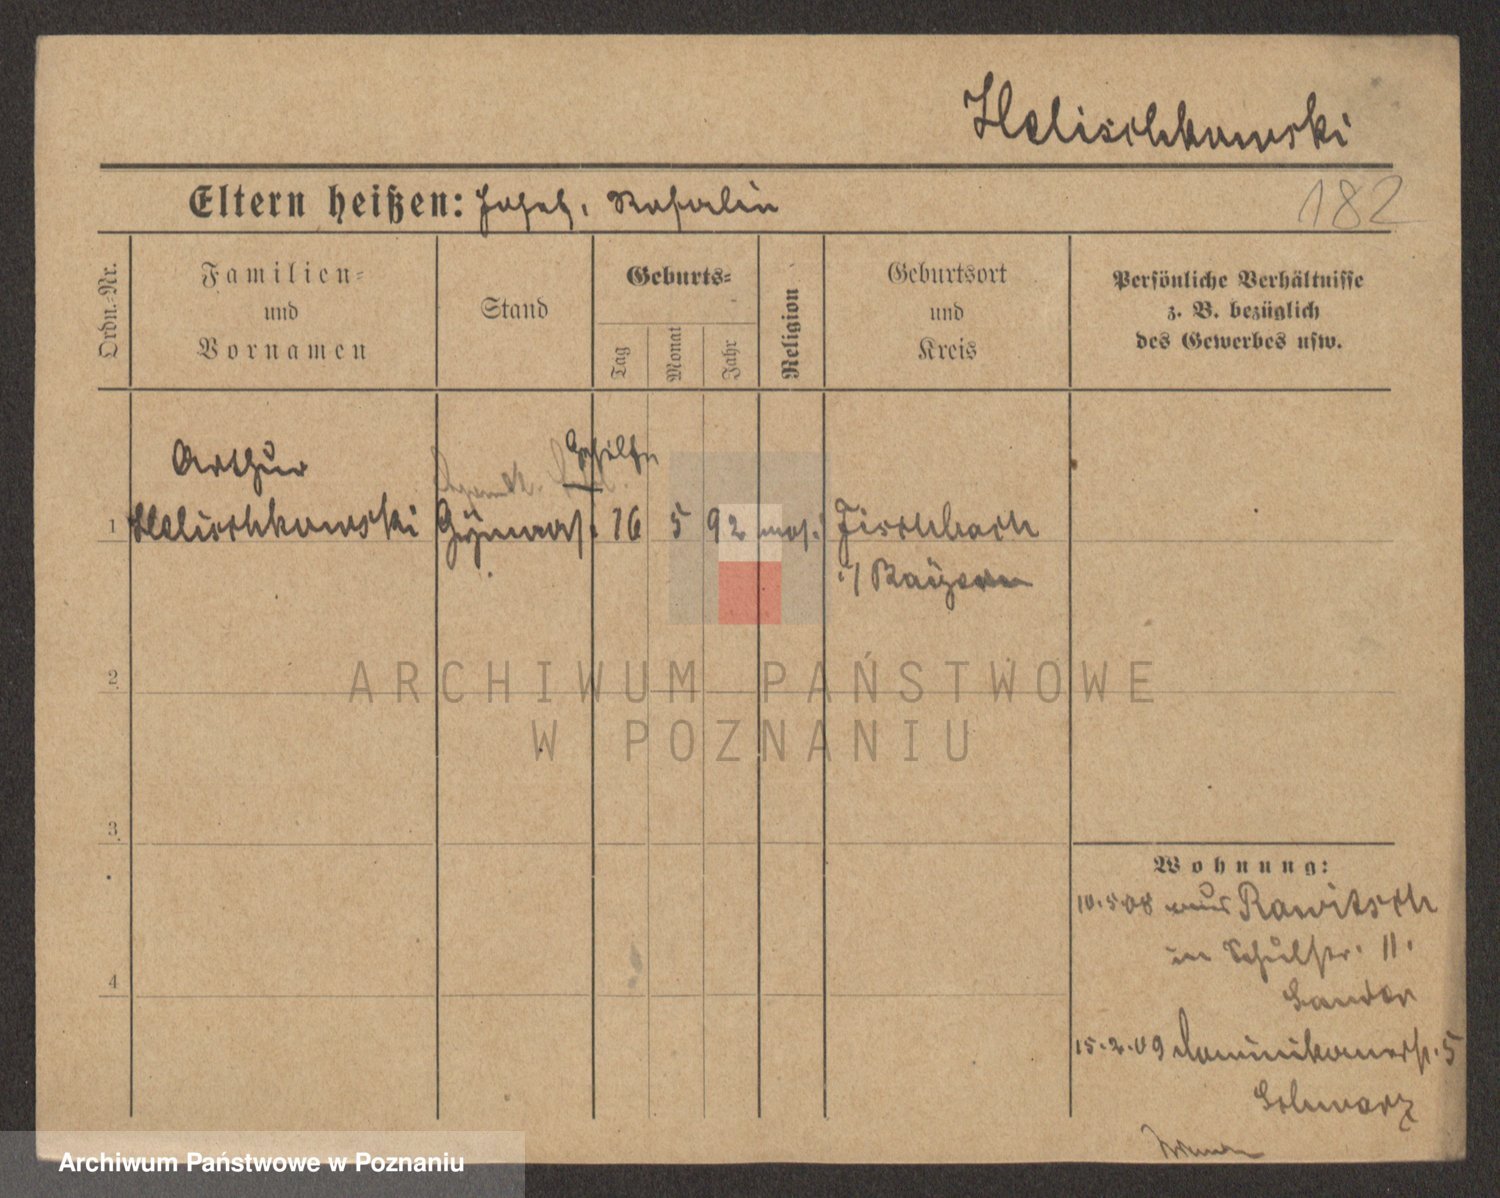 Helischkowski
Eltern heißen: Josef, Rosalie
182
Ordn.-Nr.
Familien-
und
Vornamen
Stand
Geburts-
Tag
Monat
Jahr
Religion
Geburtsort
und
Kreis
Persönliche Verhältnisse
z. B. bezüglich
des Gewerbes usw.
Arthur
Gehilfe
1 Helischkowski Gymnas. 16 5 92 mos. Fischbach
i/ Bayern
2
3
4
Wohnung:
10.5.08 aus Rawitsch
in Schulstr. 11.
Sander
15.2.09 Dominikanerstr. 5
Schwarz
ARCHIWUM PAŃSTWOWE
W POZNANIU
Archiwum Państwowe w Poznaniu